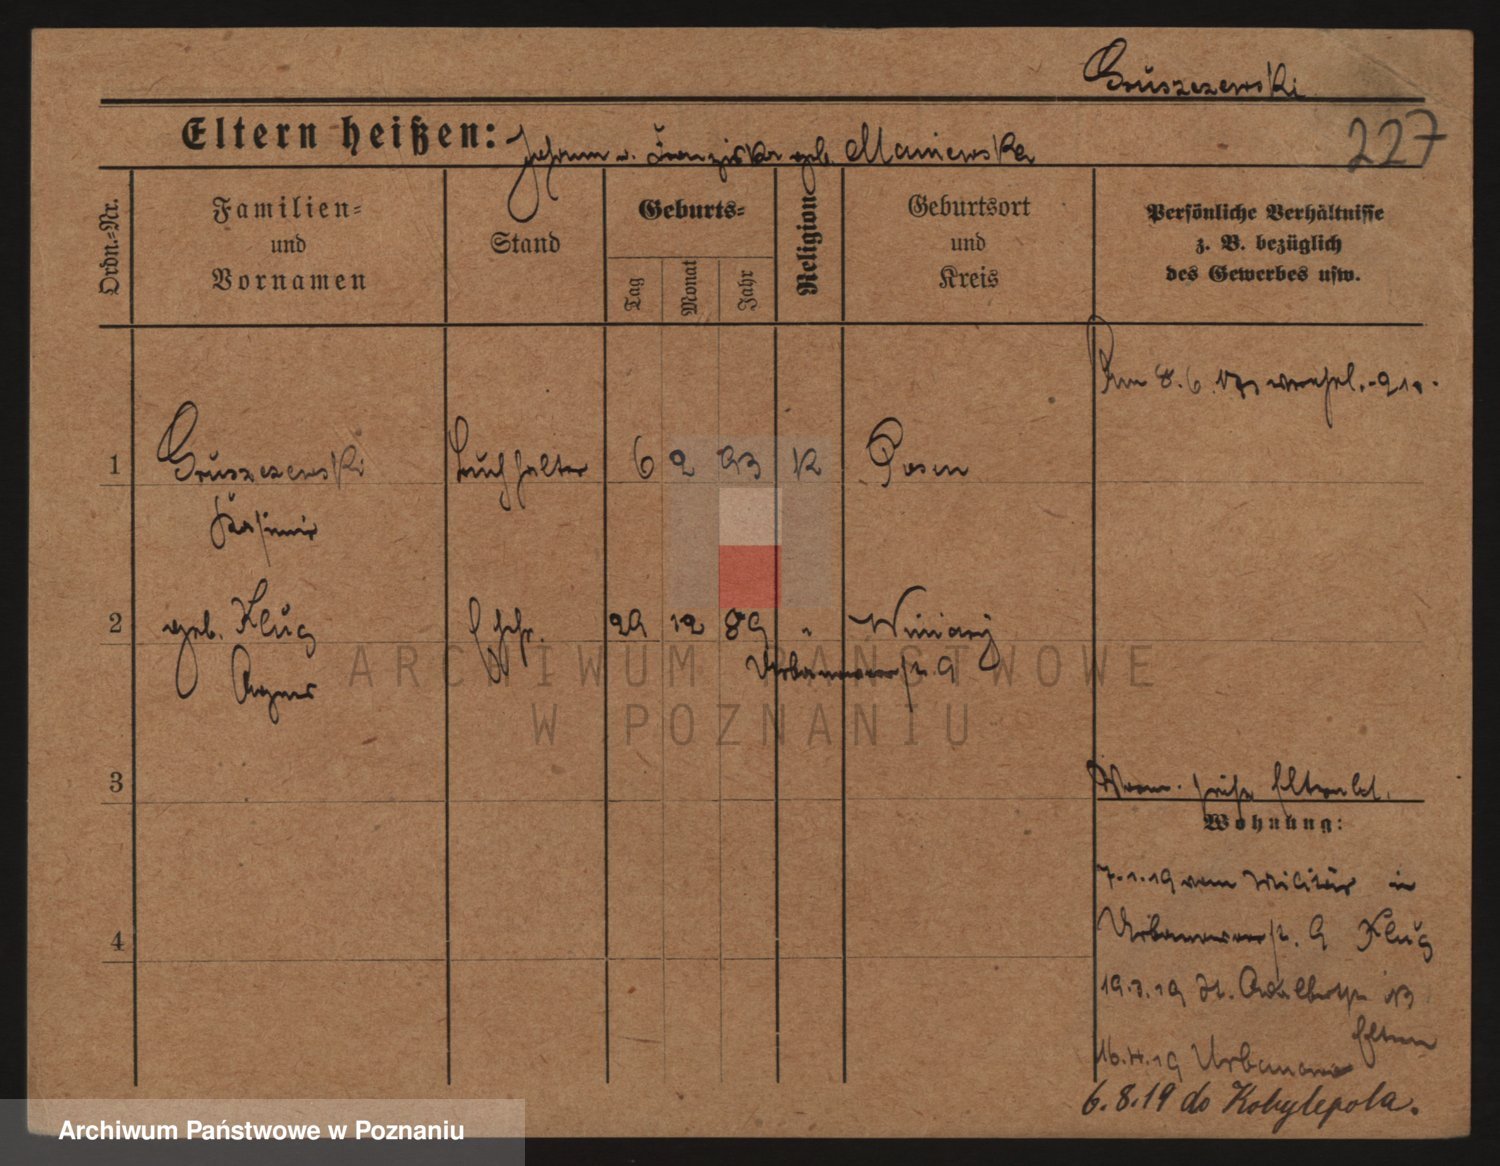 Gruszczewski
227
Eltern heißen: Johann u. Franziska geb. Maniewska
Ordn.-Nr.
Familien-
und
Vornamen
Stand
Geburts-
Tag
Monat
Jahr
Religion
Geburtsort
und
Kreis
Persönliche Verhältnisse
z. B. bezüglich
des Gewerbes usw.
Am 8. 6.
1 Gruszczewski Buchhalter 6 2 93 K Posen
Kasimir
2 geb. Klug Ehefr. 29 12 89 " Winiary
Agnes
Urbanowerstr. 9
3
Wohnung:
7.1.19 vom Militär in
Urbanowerstr. 9 Klug
4
19.3.19 St. Adalbertstr
Eltern
16.4.19 Urbanowo
6.8.19 do Kobylepola.
ARCHIWUM PAŃSTWOWE
W POZNANIU
Archiwum Państwowe w Poznaniu